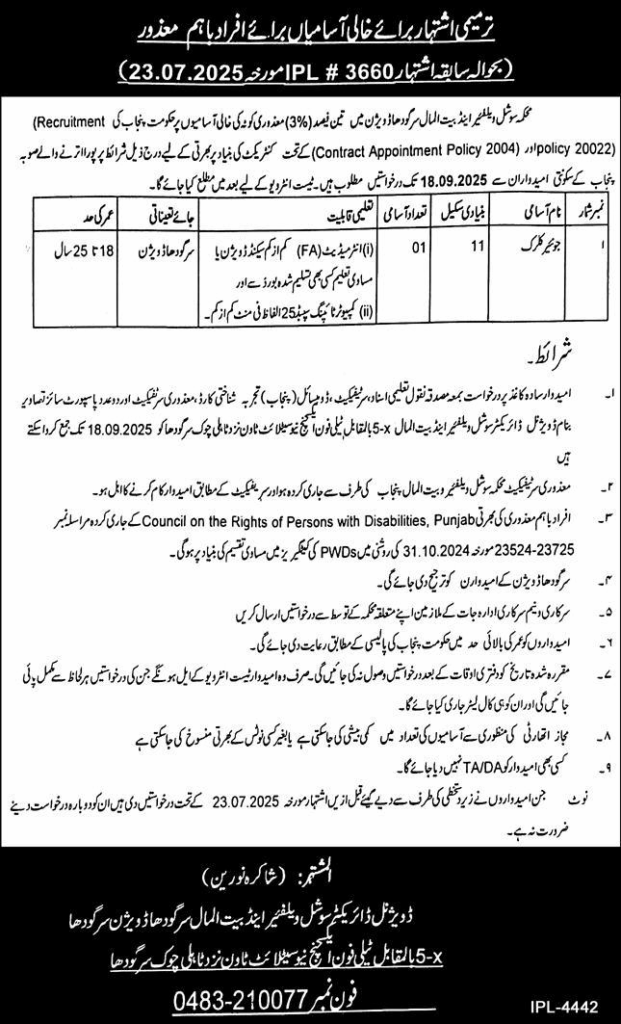 ترمیمی اشتہار برائے خالی آسامیاں برائے افراد باہم معذور
(بحوالہ سابقہ اشتہار IPL # 3660 مورخہ 23.07.2025)
محکمہ سوشل ویلفیئر اینڈ بیت المال سرگودھا ڈویژن میں تین فیصد (3%) معذوری کوٹہ کی خالی آسامیوں پر حکومت پنجاب کی (Recruitment
policy 20022) اور (Contract Appointment Policy 2004) کے تحت کنٹریکٹ کی بنیاد پر بھرتی کے لیے درج ذیل شرائط پر پورا اترنے والے صوبہ
پنجاب کے سکونتی امیدواران سے 18.09.2025 تک درخواستیں مطلوب ہیں۔ ٹیسٹ انٹرویو کے لیے بعد میں مطلع کیا جائے گا۔
نمبر شمار نام آسامی بنیادی سکیل تعداد آسامی تعلیمی قابلیت جائے تعیناتی عمر کی حد
۱ جونیئر کلرک 11 01 (i) انٹرمیڈیٹ (FA) کم از کم سیکنڈ ڈویژن یا سرگودھا ڈویژن 18 تا 25 سال
مساوی تعلیم کسی بھی تسلیم شدہ بورڈ سے اور
(ii) کمپیوٹر ٹائپنگ سپیڈ 25 الفاظ فی منٹ کم از کم۔
شرائط۔
۱۔ امیدوار سادہ کاغذ پر درخواست بمعہ مصدقہ نقول تعلیمی اسناد، سرٹیفکیٹ، ڈومیسائل (پنجاب) تجربہ شناختی کارڈ، معذوری سرٹیفکیٹ اور دو عدد پاسپورٹ سائز تصاویر
بنام ڈویژنل ڈائریکٹر سوشل ویلفیئر اینڈ بیت المال 5-x بالمقابل ٹیلی فون ایکسچینج نیو سیٹلائٹ ٹاؤن نزد ٹاہلی چوک سرگودھا کو 18.09.2025 تک جمع کروا سکتے
ہیں
۲۔ معذوری سرٹیفکیٹ محکمہ سوشل ویلفیئر و بیت المال پنجاب کی طرف سے جاری کردہ ہو اور سرٹیفکیٹ کے مطابق امیدوار کام کرنے کا اہل ہو۔
۳۔ افراد باہم معذوری کی بھرتی Council on the Rights of Persons with Disabilities, Punjab کے جاری کردہ مراسلہ نمبر
23524-23725 مورخہ 31.10.2024 کی روشنی میں PWDs کی کیٹگریز میں مساوی تقسیم کی بنیاد پر ہوگی۔
۴۔ سرگودھا ڈویژن کے امیدوارن کو ترجیح دی جائے گی۔
۵۔ سرکاری و نیم سرکاری ادارہ جات کے ملازمین اپنے متعلقہ محکمہ کے توسط سے درخواستیں ارسال کریں
۶۔ امیدواروں کو عمر کی بالائی حد میں حکومت پنجاب کی پالیسی کے مطابق رعایت دی جائے گی۔
۷۔ مقررہ شدہ تاریخ کو دفتری اوقات کے بعد درخواستیں وصول نہ کی جائیں گی۔ صرف وہ امیدوار ٹیسٹ انٹرویو کے اہل ہونگے جن کی درخواستیں ہر لحاظ سے مکمل پائی
جائیں گی اور ان کو ہی کال لیٹر جاری کیا جائے گا۔
۸۔ مجاز اتھارٹی کی منظوری سے آسامیوں کی تعداد میں کمی بیشی کی جا سکتی ہے یا بغیر کسی نوٹس کے بھرتی منسوخ کی جا سکتی ہے
۹۔ کسی بھی امیدوار کو TA/DA نہیں دیا جائے گا۔
نوٹ جن امیدواروں نے زیر دستخطی کی طرف سے دیے گئے قبل ازیں اشتہار مورخہ 23.07.2025 کے تحت درخواستیں دی ہیں ان کو دوبارہ درخواست دینے
ضرورت نہ ہے۔
المشتہر: (شاکرہ نورین)
ڈویژنل ڈائریکٹر سوشل ویلفیئر اینڈ بیت المال سرگودھا ڈویژن سرگودھا
5-x بالمقابل ٹیلی فون ایکسچینج نیو سیٹلائٹ ٹاون نزد ٹاہلی چوک سرگودھا
فون نمبر 0483-210077
IPL-4442